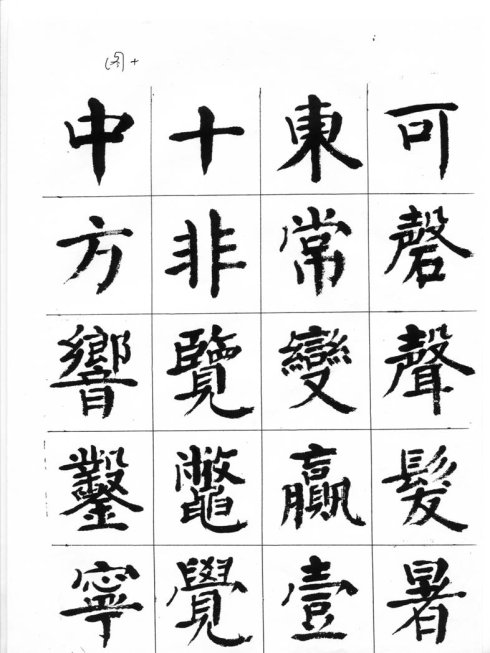 图十
可磬聲髮暑
東常變贏壹
十非覽鼈覺
中方響鑿寧